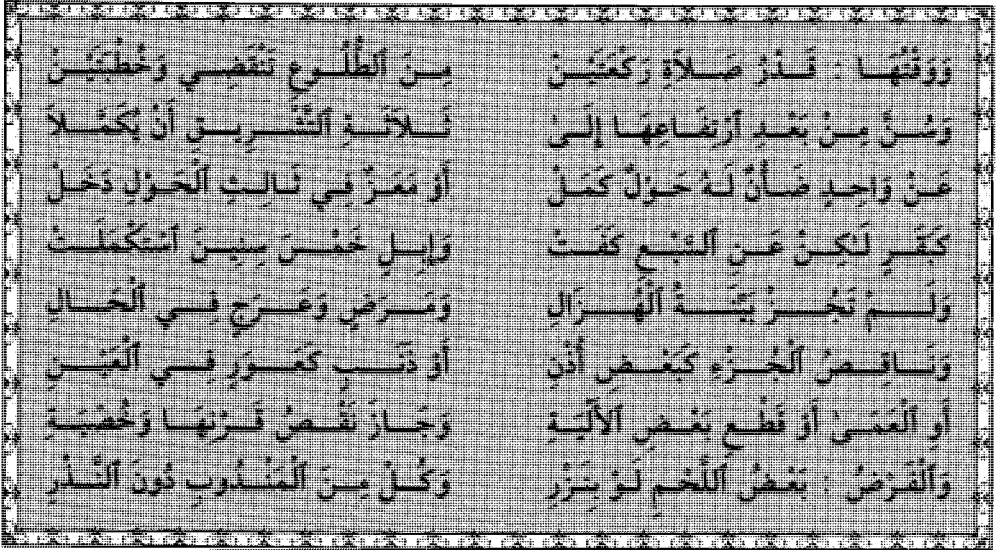 وَوَقْتُهَا : قَدْرُ صَلاَةِ رَكْعَتَيْنْ مِنَ ٱلطُّلُوعِ تَنْقَضِي وَخُطْبَتَيْنْ
وَسُنَّ مِنْ بَعْدِ ٱرْتِفَاعِهَا إِلَىٰ ثَلاَثَةِ ٱلتَّشْرِيقِ أَنْ يُكَمَّلاَ
عَنْ وَاحِدٍ ضَأْنٌ لَهُ حَوْلٌ كَمَلْ أَوْ مَعَزٌ فِي ثَالِثِ ٱلْحَوْلِ دَخَلْ
كَبَقَرٍ لَـٰكِنْ عَنِ ٱلسَّبْعِ كَفَتْ وَإِبِلٍ خَمْسَ سِنِينَ ٱسْتَكْمَلَتْ
وَلَمْ تَجُزْ بَيِّنَةُ ٱلْهُزَالِ وَمَرَضٍ وَعَرَجٍ فِي ٱلْحَالِ
وَنَاقِصُ ٱلْجُزْءِ كَبَعْضِ أُذْنِ أَوْ ذَنَبٍ كَعَوَرٍ فِي ٱلْعَيْنِ
أَوِ ٱلْعَمَىٰ أَوْ قَطْعِ بَعْضِ ٱلأَلْيَةِ وَجَازَ نَقْصُ قَرْنِهَا وَخُصْيَةِ
وَٱلْفَرْضُ : بَعْضُ ٱللَّحْمِ لَوْ بِنَزْرِ وَكُلْ مِنَ ٱلْمَنْدُوبِ دُونَ ٱلنَّذْرِ